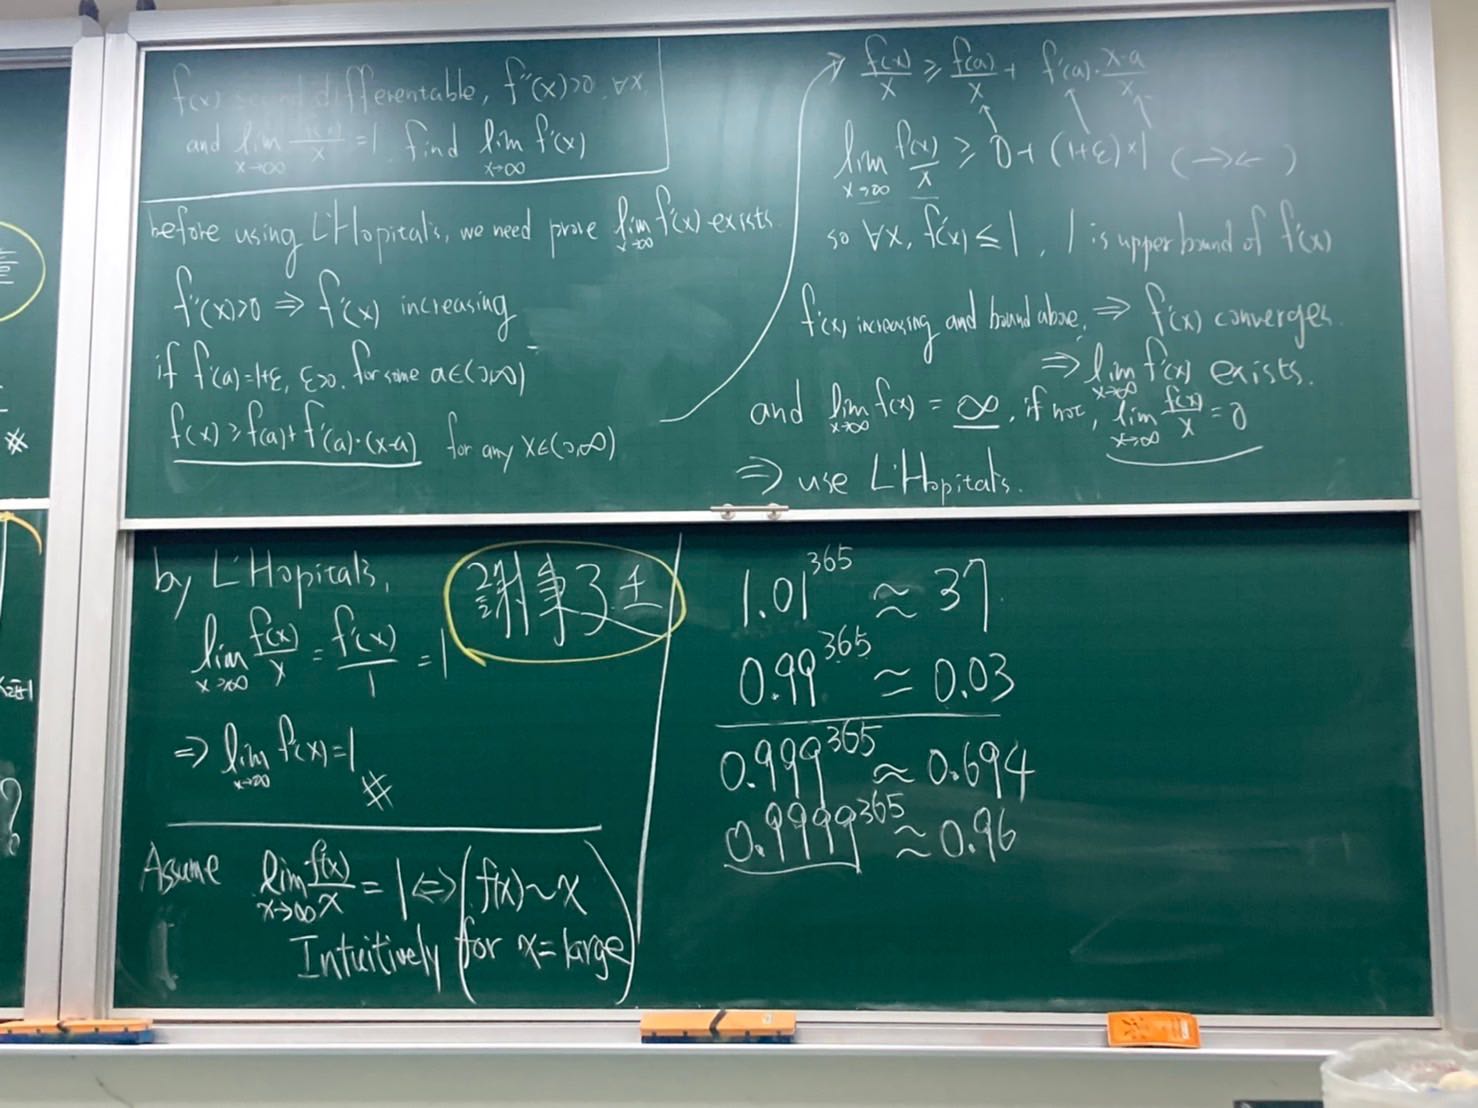 f(x) second differentable, f''(x)>0, ∀x,
and lim x→∞ f(x)/x = 1, find lim x→∞ f'(x)
before using L'Hopital's, we need prove lim x→∞ f'(x) exists.
f''(x)>0 ⇒ f'(x) increasing
if f'(a)=1+ε, ε>0, for some a∈(0,∞)
f(x) ≥ f(a)+f'(a)·(x-a) for any x∈(0,∞)
f(x)/x ≥ f(a)/x + f'(a)·(x-a)/x
lim x→∞ f(x)/x ≥ 0+(1+ε)×1 (→←)
so ∀x, f'(x) ≤ 1, 1 is upper bound of f'(x)
f'(x) increasing and bound above, ⇒ f'(x) converges.
⇒ lim x→∞ f'(x) exists.
and lim x→∞ f(x) = ∞, if not, lim x→∞ f(x)/x = 0
⇒ use L'Hopital's.
by L'Hopital's,
lim x→∞ f(x)/x = f'(x)/1 = 1
⇒ lim x→∞ f'(x)=1
#
Assume lim x→∞ f(x)/x = 1 ⇔ (f(x)~x
Intuitively for x=large)
1.01^365 ≈ 37
0.99^365 ≈ 0.03
0.999^365 ≈ 0.694
0.9999^365 ≈ 0.96
#
?